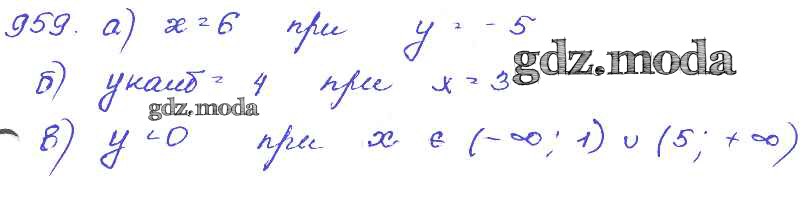 959. а) x = 6 при y = -5
б) yнаиб = 4 при x = 3
gdz.moda
gdz.moda
в) y < 0 при x ∈ (-∞; 1) ∪ (5; +∞)